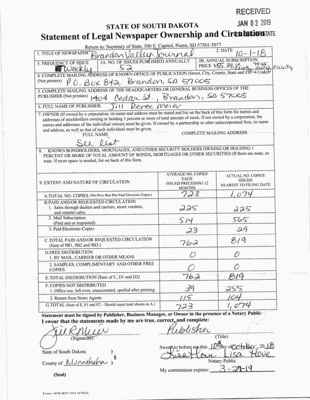 RECEIVED
JAN 02 2019
STATE OF SOUTH DAKOTA
Statement of Legal Newspaper Ownership and Circulation
Return to: Secretary of State, 500 E. Capitol, Pierre, SD 57501-5077
1. TITLE OF NEWSPAPER Brandon Valley Journal
2. DATE 10-1-18
3. FREQUENCY OF ISSUE Weekly
3A. NO. OF ISSUES PUBLISHED ANNUALLY 52
3B. ANNUAL SUBSCRIPTION PRICE
4. COMPLETE MAILING ADDRESS OF KNOWN OFFICE OF PUBLICATION (Street, City, County, State and ZIP+4 Code)
(Not printers) P.O. Box 842, Brandon, SD 57005
5. COMPLETE MAILING ADDRESS OF THE HEADQUARTERS OR GENERAL BUSINESS OFFICES OF THE
PUBLISHER (Not Printers) 1404 Cedar St., Brandon, SD 57005
6. FULL NAME OF PUBLISHER: Jill Renee Meier
7. OWNER (If owned by a corporation, its name and address must be stated and list on the back of this form the names and
addresses of stockholders owning or holding 1 percent or more of total amount of stock. If not owned by a corporation, the
names and addresses of the individual owners must be given. If owned by a partnership or other unincorporated firm, its name
and address, as well as that of each individual must be given.
FULL NAME COMPLETE MAILING ADDRESS
See list
8. KNOWN BONDHOLDERS, MORTGAGES, AND OTHER SECURITY HOLDERS OWNING OR HOLDING 1
PERCENT OR MORE OF TOTAL AMOUNT OF BONDS, MORTGAGES OR OTHER SECURITIES (If there are none, so
state. If more space is needed, list on back of this form.
9. EXTENT AND NATURE OF CIRCULATION
AVERAGE NO. COPIES EACH ISSUED PRECEDING 12 MONTHS
ACTUAL NO. COPIES ISSUED NEAREST TO FILING DATE
A. TOTAL NO. COPIES 723 1,074
B. PAID AND/OR REQUESTED CIRCULATION
1. Sales through dealers and carriers, street vendors, and counter sales. 225 225
2. Mail Subscription (Paid and or requested) 514 565
3. Paid Electronic Copies 23 29
C. TOTAL PAID AND/OR REQUESTED CIRCULATION
(Sum of 9B1, 9B2 and 9B3.) 762 819
D. FREE DISTRIBUTION
1. BY MAIL, CARRIER OR OTHER MEANS 0 0
2. SAMPLES, COMPLIMENTARY AND OTHER FREE COPIES 0 0
E. TOTAL DISTRIBUTION (Sum of C, D1 and D2) 762 819
F. COPIES NOT DISTRIBUTED
1. Office use, left over, unaccounted, spoiled after printing 39 255
2. Return from News Agents 115 104
G. TOTAL (Sum of E, F1 and F2. Should equal total shown in A.) 723 1,074
Statement must be signed by Publisher, Business Manager, or Owner in the presence of a Notary Public
I swear that the statements made by me are true, correct, and complete:
Publisher
(Signature) (Title)
State of South Dakota )
County of Minnehaha )
Sworn to before me this 10th day of October, 2018
Lisa Hove
Notary Public
(Seal)
My commission expires: 3-27-19